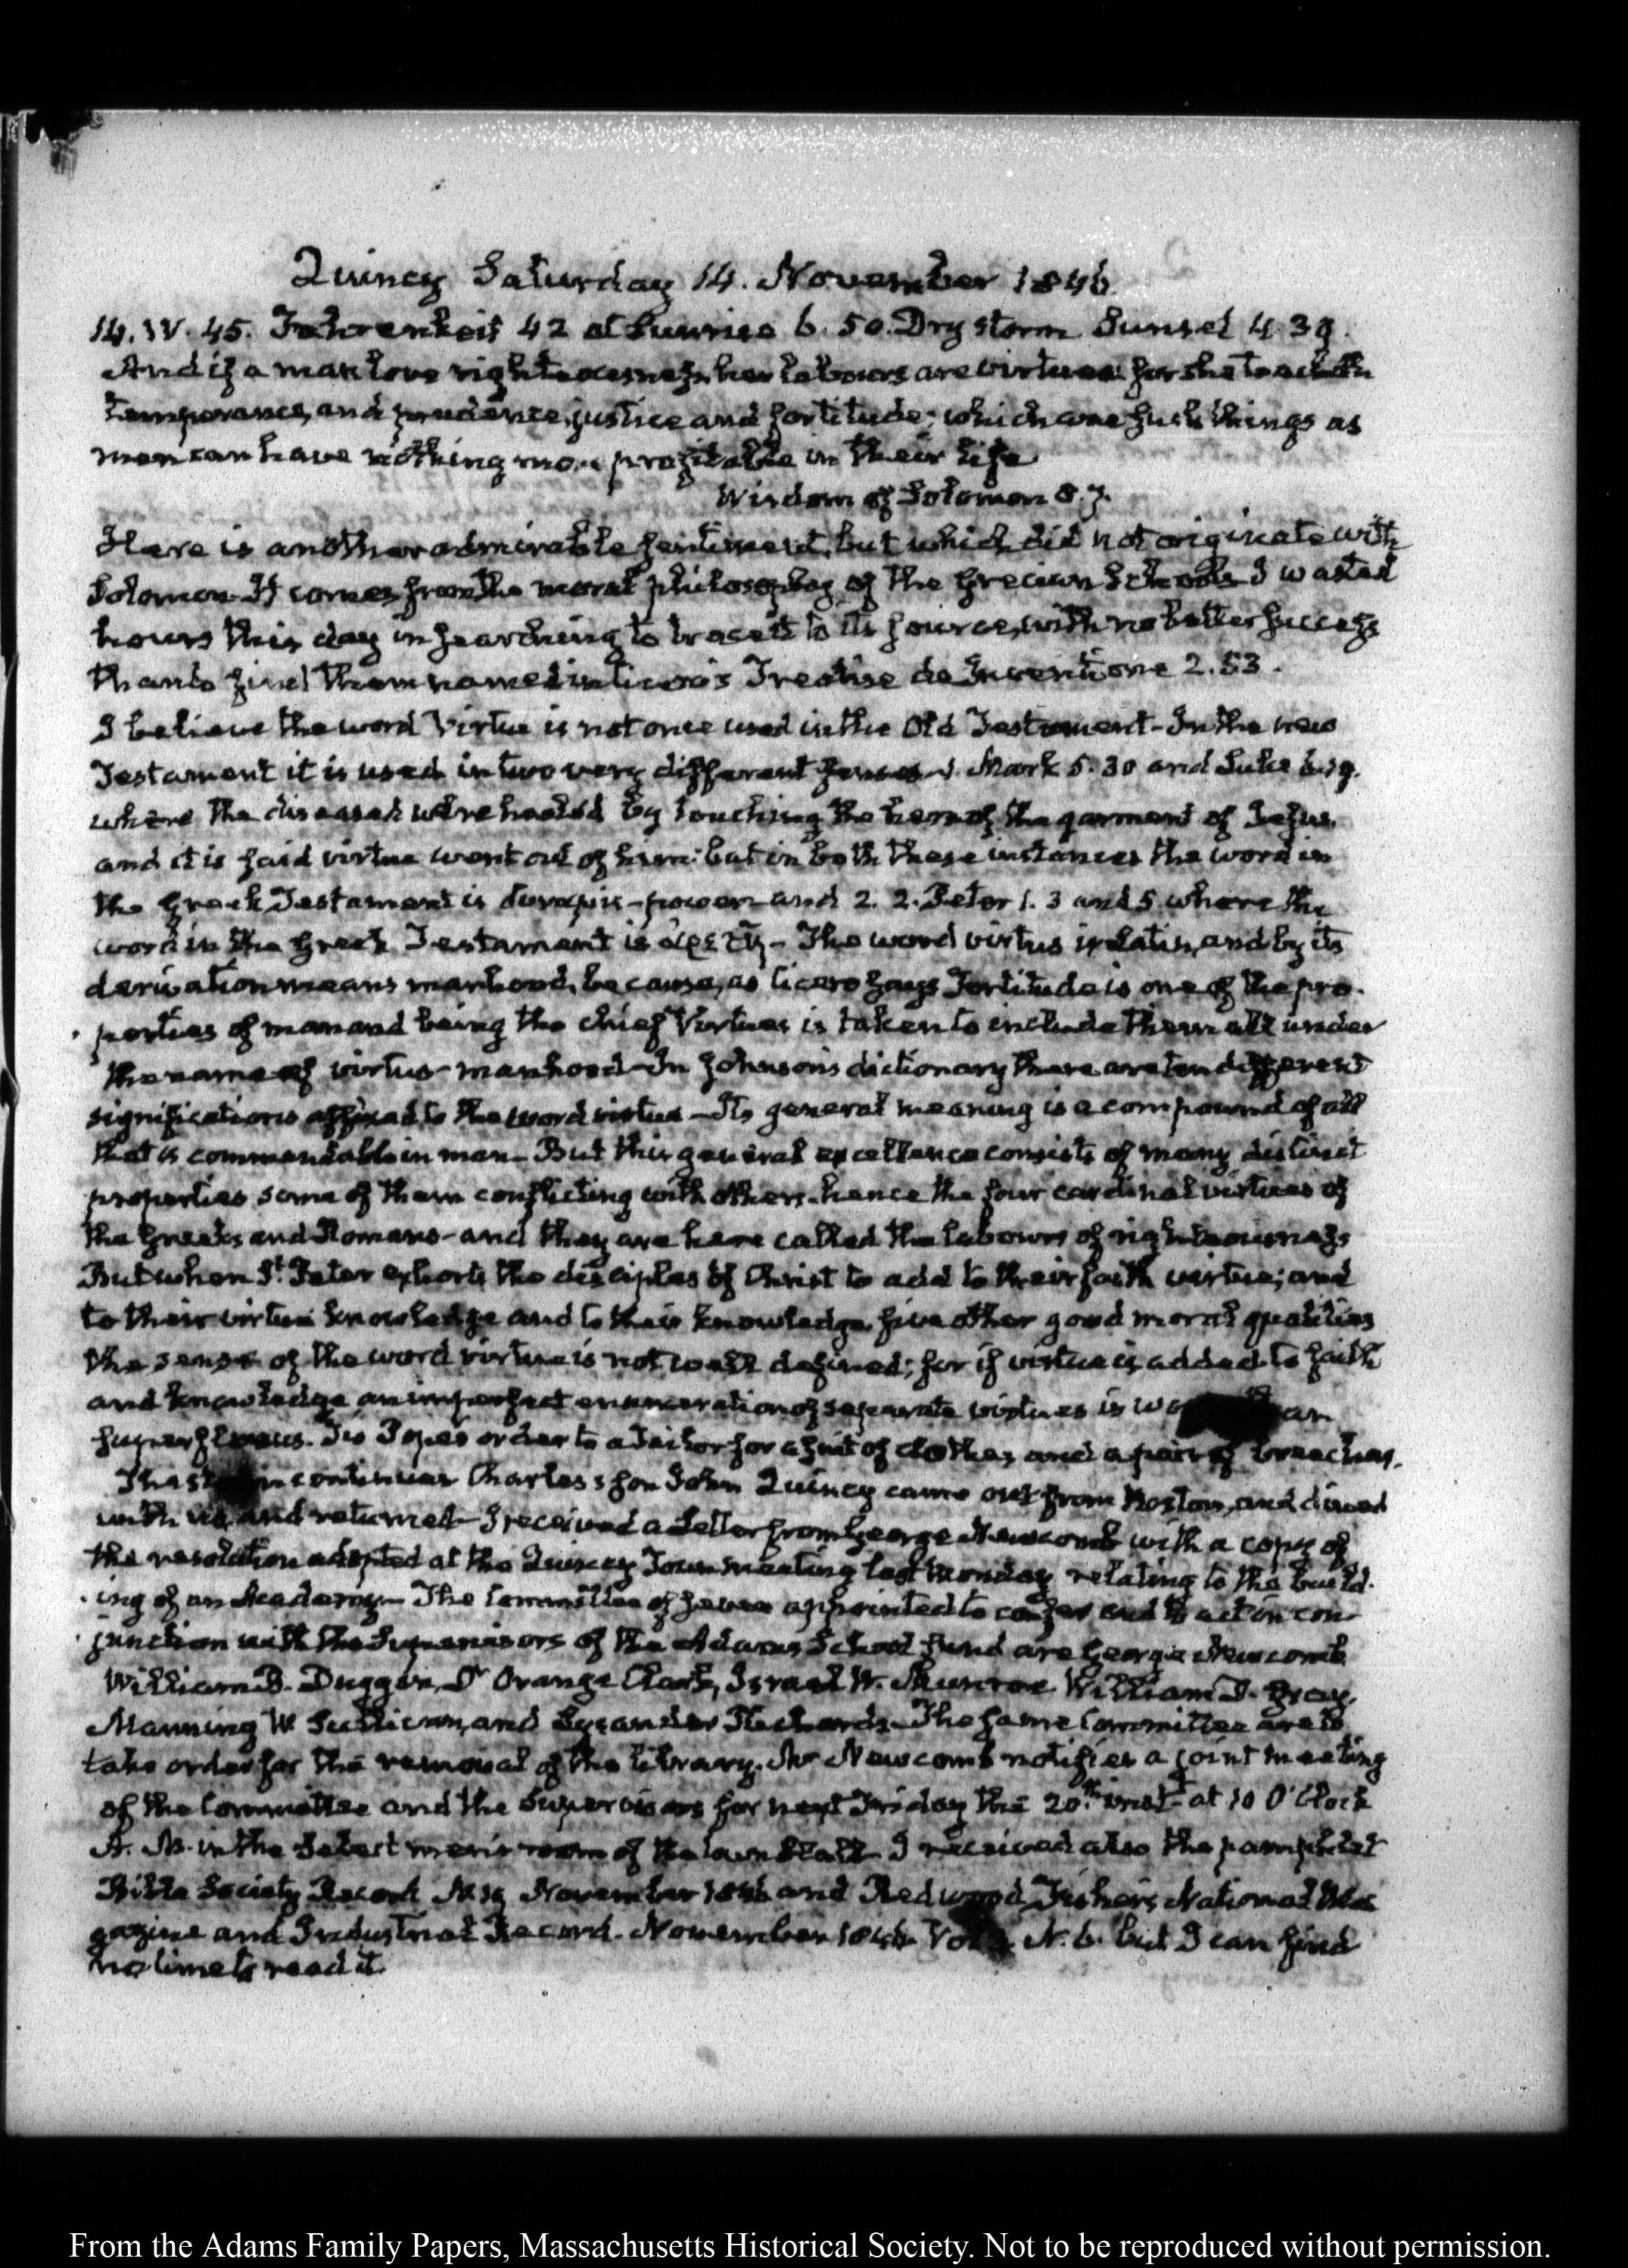 Quincy Saturday 14. November 1846.
14. IV. 45. Fahrenheit 42 at Sunrise 6. 50. Dry storm Sunset 4. 39.
And if a man love righteousness, her labours are virtues: for she teacheth
temperance, and prudence, justice and fortitude; which are such things as
men can have nothing more profitable in their life
Wisdom of Solomon 8. 7.
Here is another admirable sentiment, but which did not originate with
Solomon. It comes from the moral philosophy of the Grecian Schools I wasted
hours this day in searching to trace it to its source, with no better success
than to find them named in Cicero's Treatise de Inventione 2. 53.
I believe the word Virtue is not once used in the Old Testament - In the new
Testament it is used in two very different senses - 1. Mark 5. 30 and Luke 6. 19.
where the diseased were healed by touching the hem of the garment of Jesus,
and it is said virtue went out of him: but in both these instances the word in
the Greek Testament is δυναμις - power - and 2. 2. Peter 1. 3 and 5. where the
word in the Greek Testament is ἀρετη - The word virtus is latin, and by its
derivation means manhood, because, as Cicero says Fortitude is one of the pro-
perties of man and being the chief Virtues is taken to include them all under
the name of virtus - manhood - In Johnson's dictionary there are ten different
significations affixed to the word virtue - Its general meaning is a compound of all
that is commendable in man - But this general excellence consists of many distinct
properties some of them conflicting with others - hence the four cardinal virtues of
the Greeks and Romans - and they are here called the labours of righteousness
But when St. Peter exhorts the disciples of Christ to add to their faith virtue; and
to their virtue knowledge and to their knowledge, five other good moral qualities
the sense of the word virtue is not well defined; for if virtue is added to faith
and knowledge an imperfect enumeration of separate virtues is
superfluous. Tis Pope's order to a Tailor for a suit of clothes, and a pair of breeches.
continues Charles's son John Quincy came out from Boston, and dined
with us, and returned - I received a Letter from George Newcomb with a copy of
the resolution adopted at the Quincy Town meeting last Monday relating to the build-
ing of an Academy - The Committee of seven appointed to confer and to act in con-
junction with the Supervisors of the Adams School fund are George Newcomb
William B. Duggan, Dr Orange Clark, Israel W. Munroe William D. Gray,
Manning W and Lysander Richards - The same Committee are to
take order for the removal of the library. Mr Newcomb notifies a joint meeting
of the Committee and the Supervisors for next Friday the 20th. inst. at 10 O'Clock
A. M. in the Select men's room of the town Hall - I received also the pamphlet
Bible Society Record November 1846 and Redwood Fisher's National Ma-
gazine and Industrial Record. November 1846. Vol N. 6. but I can find
no time to read it.
From the Adams Family Papers, Massachusetts Historical Society. Not to be reproduced without permission.